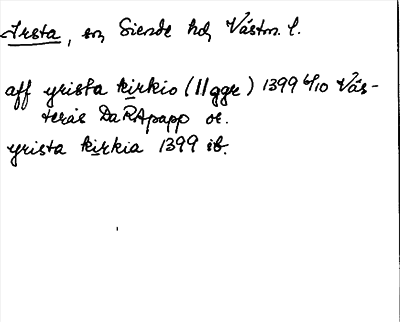 Irsta, sn, Siende hd, Västm. l.
aff yrista kirkio (11 ggr) 1399 6/10 Väs-
terås Da RApapp or.
yrista kirkia 1399 ib.